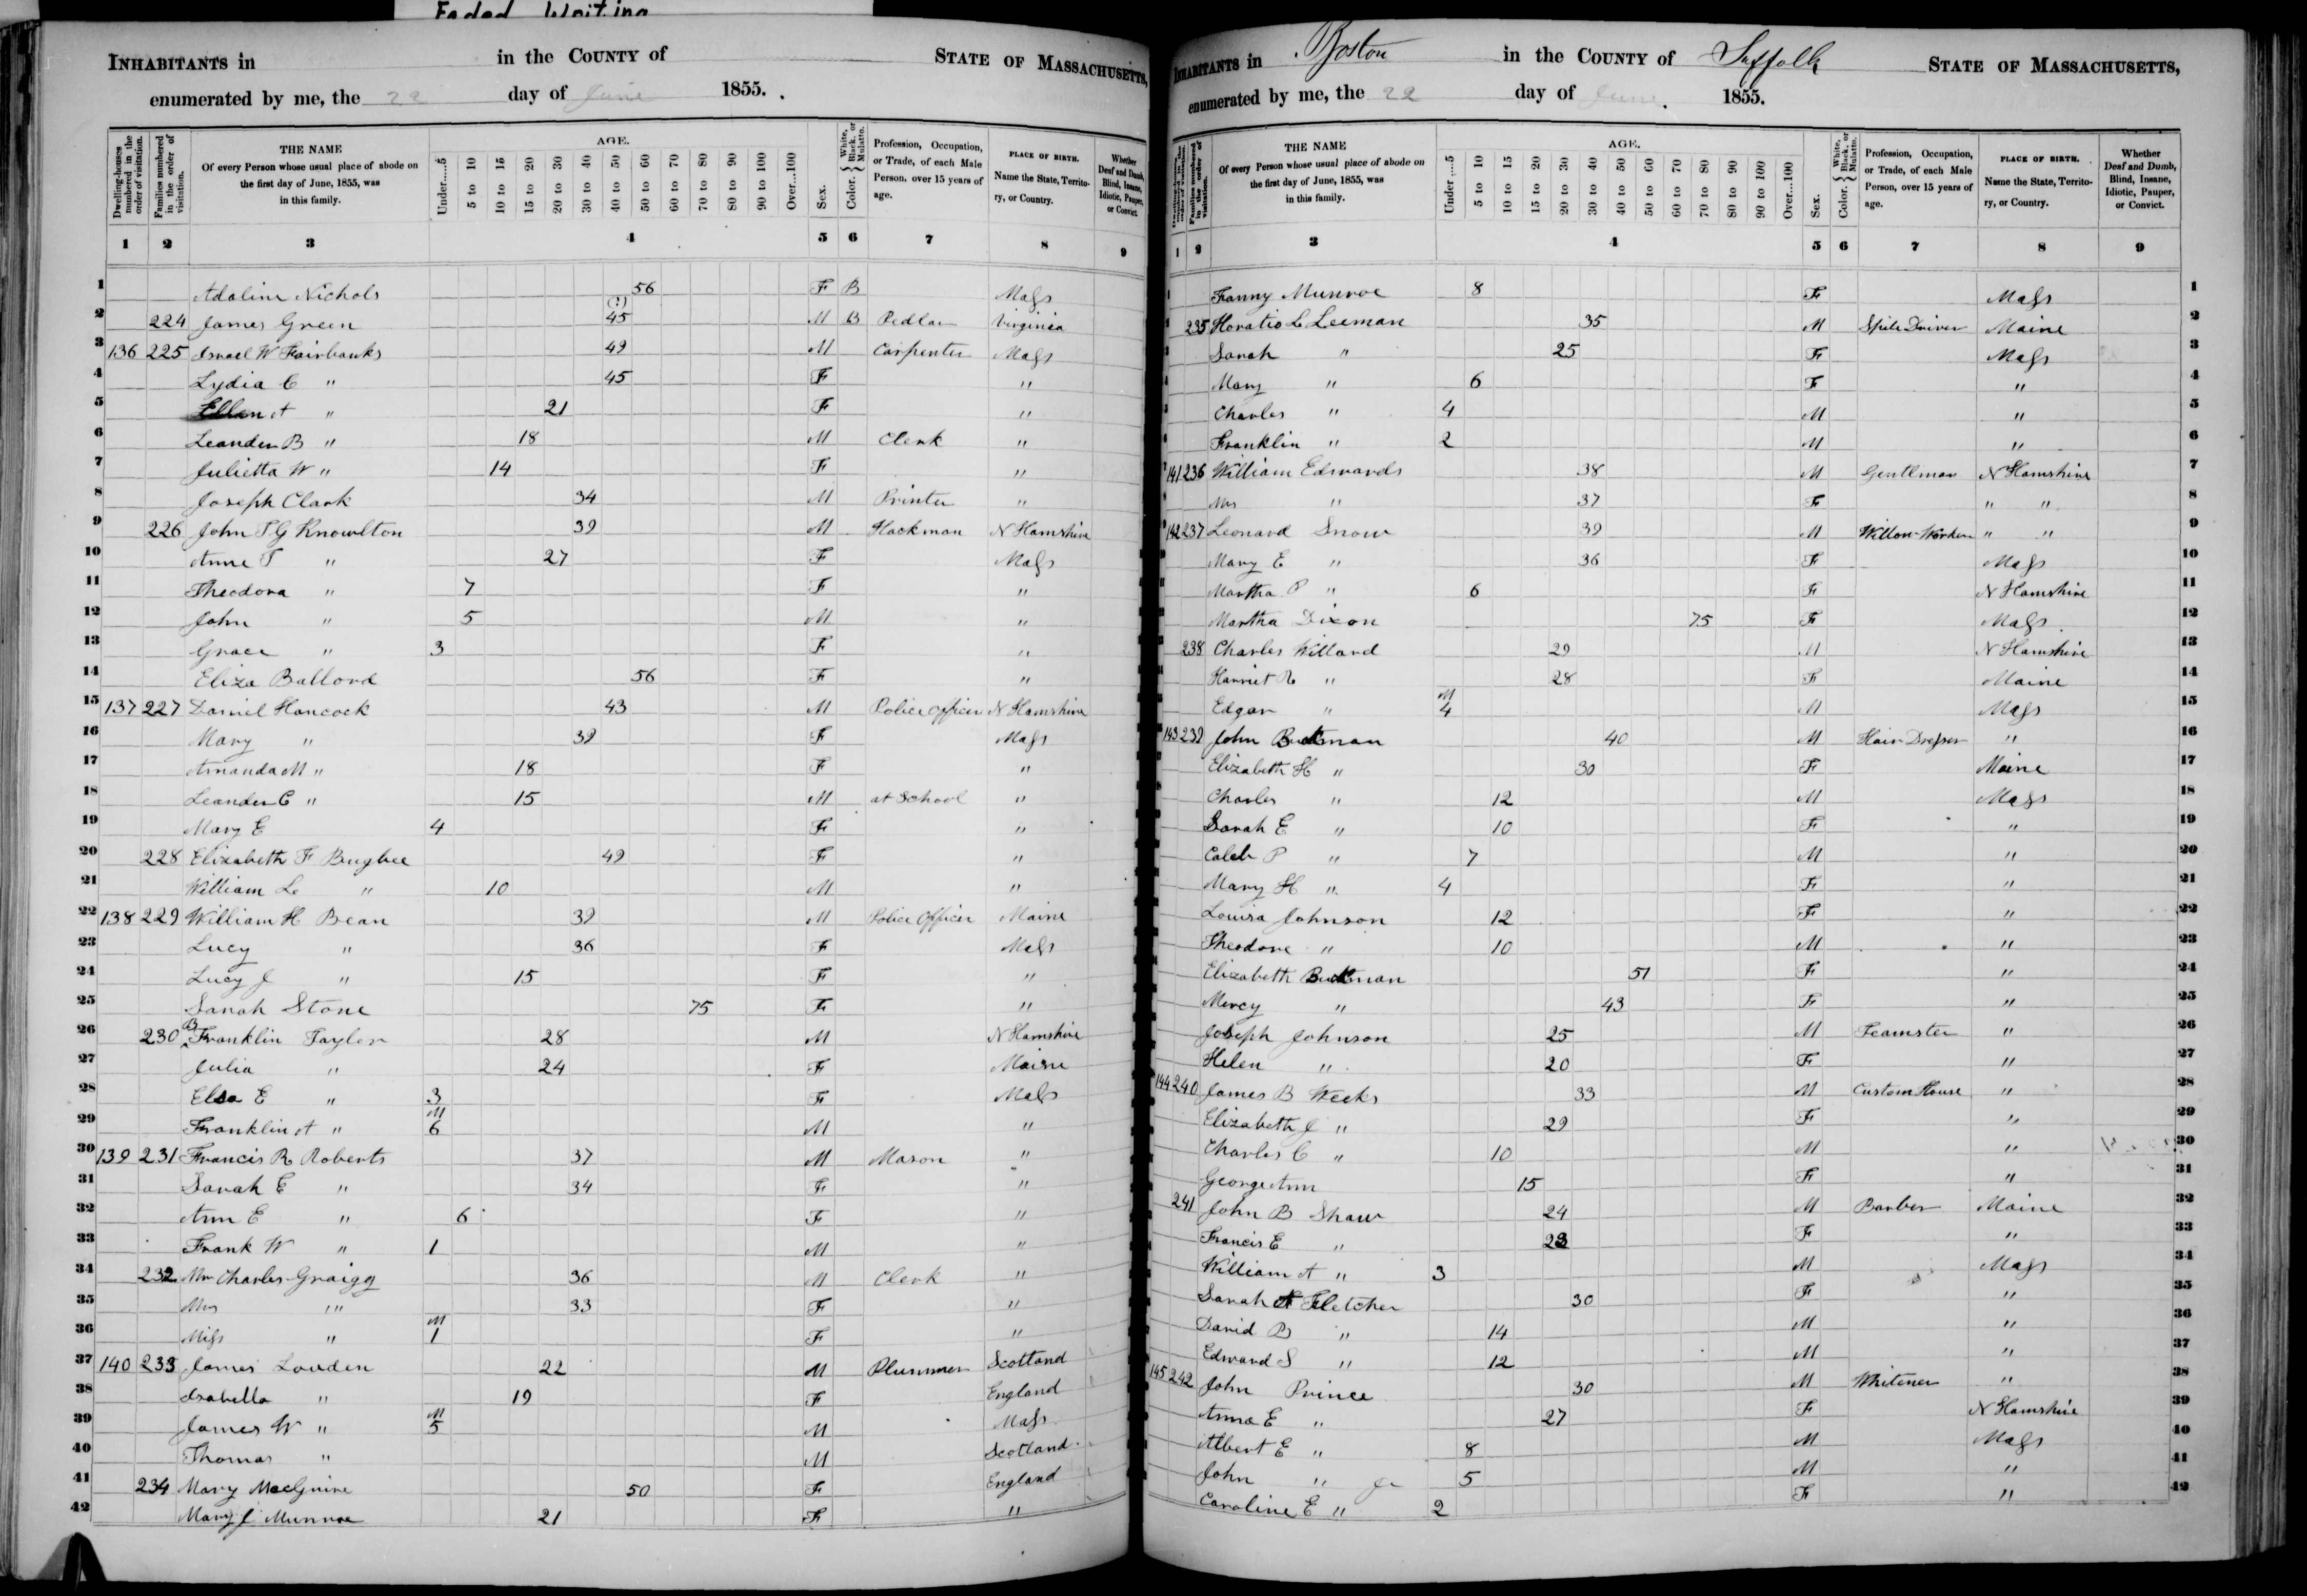 Faded Writing
INHABITANTS in in the COUNTY of STATE OF MASSACHUSETTS,
enumerated by me, the 22 day of June 1855.
Dwelling-houses numbered in the order of visitation. Families numbered in the order of visitation. THE NAME Of every Person whose usual place of abode on the first day of June, 1855, was in this family. AGE. Under....5 5 to 10 10 to 15 15 to 20 20 to 30 30 to 40 40 to 50 50 to 60 60 to 70 70 to 80 80 to 90 90 to 100 Over...100 Sex. Color. White, Black, or Mulatto. Profession, Occupation, or Trade, of each Male Person, over 15 years of age. PLACE OF BIRTH. Name the State, Territory, or Country. Whether Deaf and Dumb, Blind, Insane, Idiotic, Pauper, or Convict.
1 2 3 4 5 6 7 8 9
1 Adaline Nichols 56 F B Mass
2 224 James Green (?) 45 M B Pedlar Virginia
3 136 225 Israel W Fairbanks 49 M Carpenter Mass
4 Lydia C " 45 F "
5 Ellen A " 21 F "
6 Leander B " 18 M Clerk "
7 Julietta W " 14 F "
8 Joseph Clark 34 M Printer "
9 226 John T G Knowlton 39 M Hackman N Hamshire
10 Anne T " 27 F Mass
11 Theodora " 7 F "
12 John " 5 M "
13 Grace " 3 F "
14 Eliza Ballord 56 F "
15 137 227 Daniel Hancock 43 M Police Officer N Hamshire
16 Mary " 39 F Mass
17 Amanda M " 18 F "
18 Leander C " 15 M at School "
19 Mary E 4 F "
20 228 Elizabeth F Bugbee 49 F "
21 William L " 10 M "
22 138 229 William H Bean 39 M Police Officer Maine
23 Lucy " 36 F Mass
24 Lucy J " 15 F "
25 Sarah Stone 75 F "
26 230 B Franklin Taylor 28 M N Hamshire
27 Julia " 24 F Maine
28 Elsa E " 3 F Mass
29 Franklin A " M 6 M "
30 139 231 Francis R Roberts 37 M Mason "
31 Sarah E " 34 F "
32 Ann E " 6 F "
33 Frank W " 1 M "
34 232 Mr Charles Graigg 36 M Clerk "
35 Mrs " 33 F "
36 Miss " M 1 F "
37 140 233 James Louden 22 M Plummer Scotland
38 Isabella " 19 F England
39 James W " M 5 M Mass
40 Thomas " M Scotland
41 234 Mary MacGuire 50 F England
42 Mary J Munroe 21 F "
INHABITANTS in Boston in the COUNTY of Suffolk STATE OF MASSACHUSETTS,
enumerated by me, the 22 day of June. 1855.
THE NAME Of every Person whose usual place of abode on the first day of June, 1855, was in this family. AGE. Under....5 5 to 10 10 to 15 15 to 20 20 to 30 30 to 40 40 to 50 50 to 60 60 to 70 70 to 80 80 to 90 90 to 100 Over...100 Sex. Color. White, Black, or Mulatto. Profession, Occupation, or Trade, of each Male Person, over 15 years of age. PLACE OF BIRTH. Name the State, Territory, or Country. Whether Deaf and Dumb, Blind, Insane, Idiotic, Pauper, or Convict.
1 2 3 4 5 6 7 8 9
Fanny Munroe 8 F Mass 1
235 Horatio L Leeman 35 M Spile Driver Maine 2
Sarah " 25 F Mass 3
Mary " 6 F " 4
Charles " 4 M " 5
Franklin " 2 M " 6
141 236 William Edwards 38 M Gentlman N Hamshire 7
Mrs " 37 F " " 8
142 237 Leonard Snow 39 M Willow-Worker " " 9
Mary E " 36 F Mass 10
Martha P " 6 F N Hamshire 11
Martha Dixon 75 F Mass 12
238 Charles Willard 29 M N Hamshire 13
Harriet R " 28 F Maine 14
Edgar " M 4 M Mass 15
143 239 John Buckman 40 M Hair Dresser " 16
Elizabeth H " 30 F Maine 17
Charles " 12 M Mass 18
Sarah E " 10 F " 19
Caleb P " 7 M " 20
Mary H " 4 F " 21
Louisa Johnson 12 F " 22
Theodore " 10 M " 23
Elizabeth Buckman 51 F " 24
Mercy " 43 F " 25
Joseph Johnson 25 M Teamster " 26
Helen " 20 F " 27
144 240 James B Weeks 33 M Custom House " 28
Elizabeth J " 29 F " 29
Charles C " 10 M " 30
George Ann 15 F " 31
241 John B Shaw 24 M Barber Maine 32
Francis E " 23 F " 33
William A " 3 M Mass 34
Sarah A Fletcher 30 F " 35
David B " 14 M " 36
Edward S " 12 M " 37
145 242 John Prince 30 M Whitener " 38
Anna E " 27 F N Hamshire 39
Albert E " 8 M Mass 40
John " Jr 5 M " 41
Caroline E " 2 F " 42